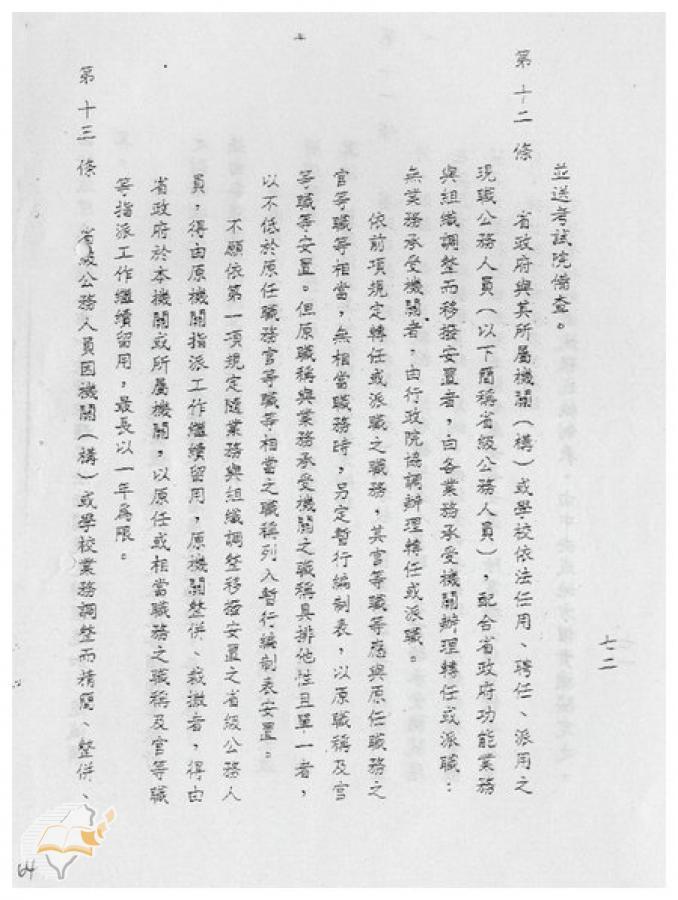 並送考試院備查。
第十二條　省政府與其所屬機關（構）或學校依法任用、聘任、派用之
現職公務人員（以下簡稱省級公務人員），配合省政府功能業務
與組織調整而移撥安置者，由各業務承受機關辦理轉任或派職；
無業務承受機關者，由行政院協調辦理轉任或派職。
依前項規定轉任或派職之職務，其官等職等應與原任職務之
官等職等相當，無相當職務時，另定暫行編制表，以原職稱及官
等職等安置。但原職稱與業務承受機關之職稱具排他性且單一者，
以不低於原任職務官等職等相當之職稱列入暫行編制表安置。
不願依第一項規定隨業務與組織調整移撥安置之省級公務人
員，得由原機關指派工作繼續留用，原機關整併、裁撤者，得由
省政府於本機關或所屬機關，以原任或相當職務之職稱及官等職
等指派工作繼續留用，最長以一年為限。
第十三條　省級公務人員因機關（構）或學校業務調整而精簡、整併、
七二
64